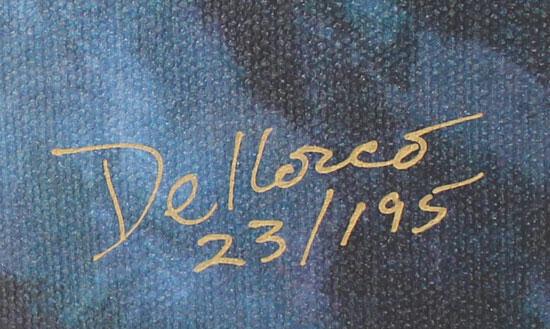 Dellorco
23/195